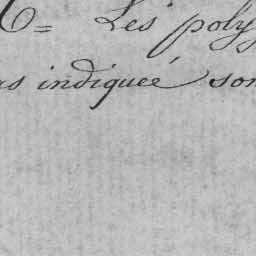 Les poly
as indiqueé son